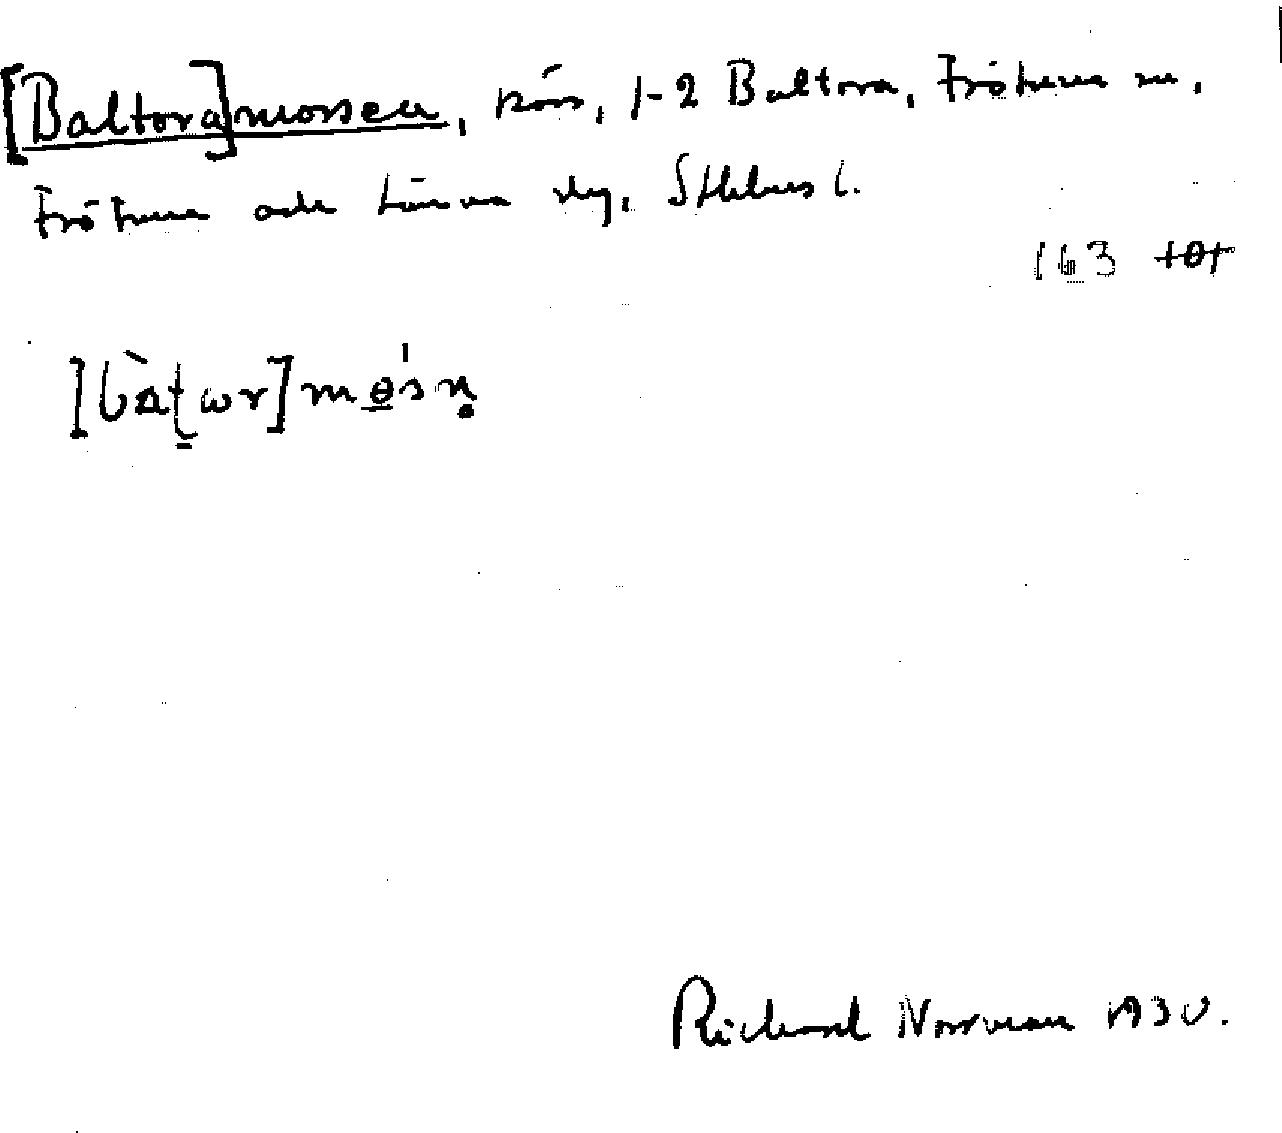 [Baltora]mossen, kärr, 1-2 Baltora, Frötuna sn,
Frötuna och Länna skg, Sthlms l.
163 tot
[bàʈωr]mɵ́sn̥
Richard Norrman 1930.